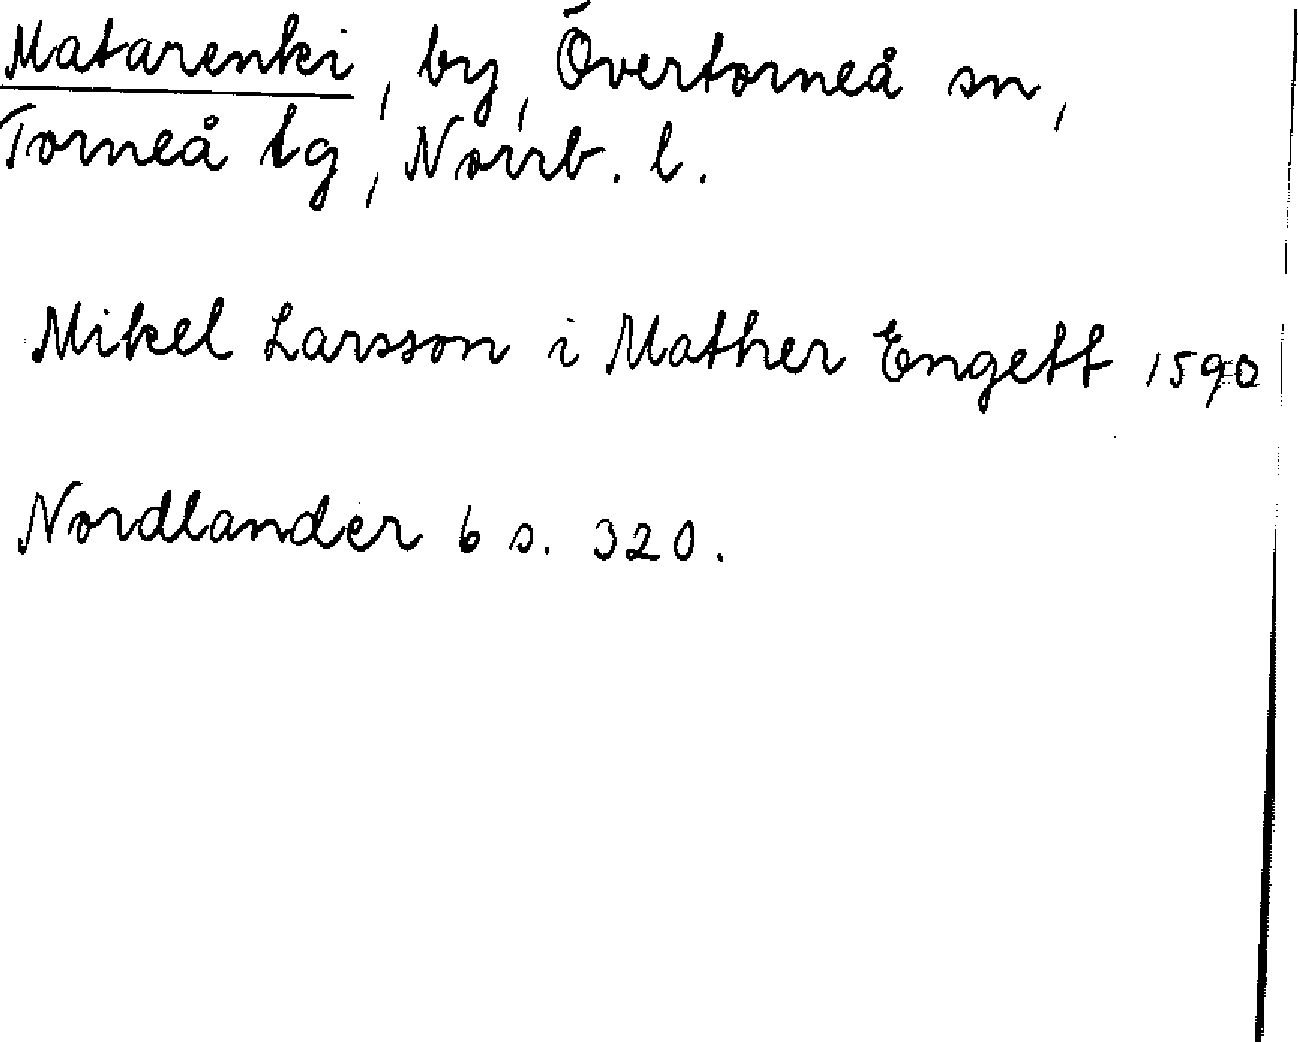 Matarenki, by, Övertorneå sn,
Torneå tg, Norrb. l.
Mikel Larsson i Mather Engett 1590
Nordlander 6 s. 320.